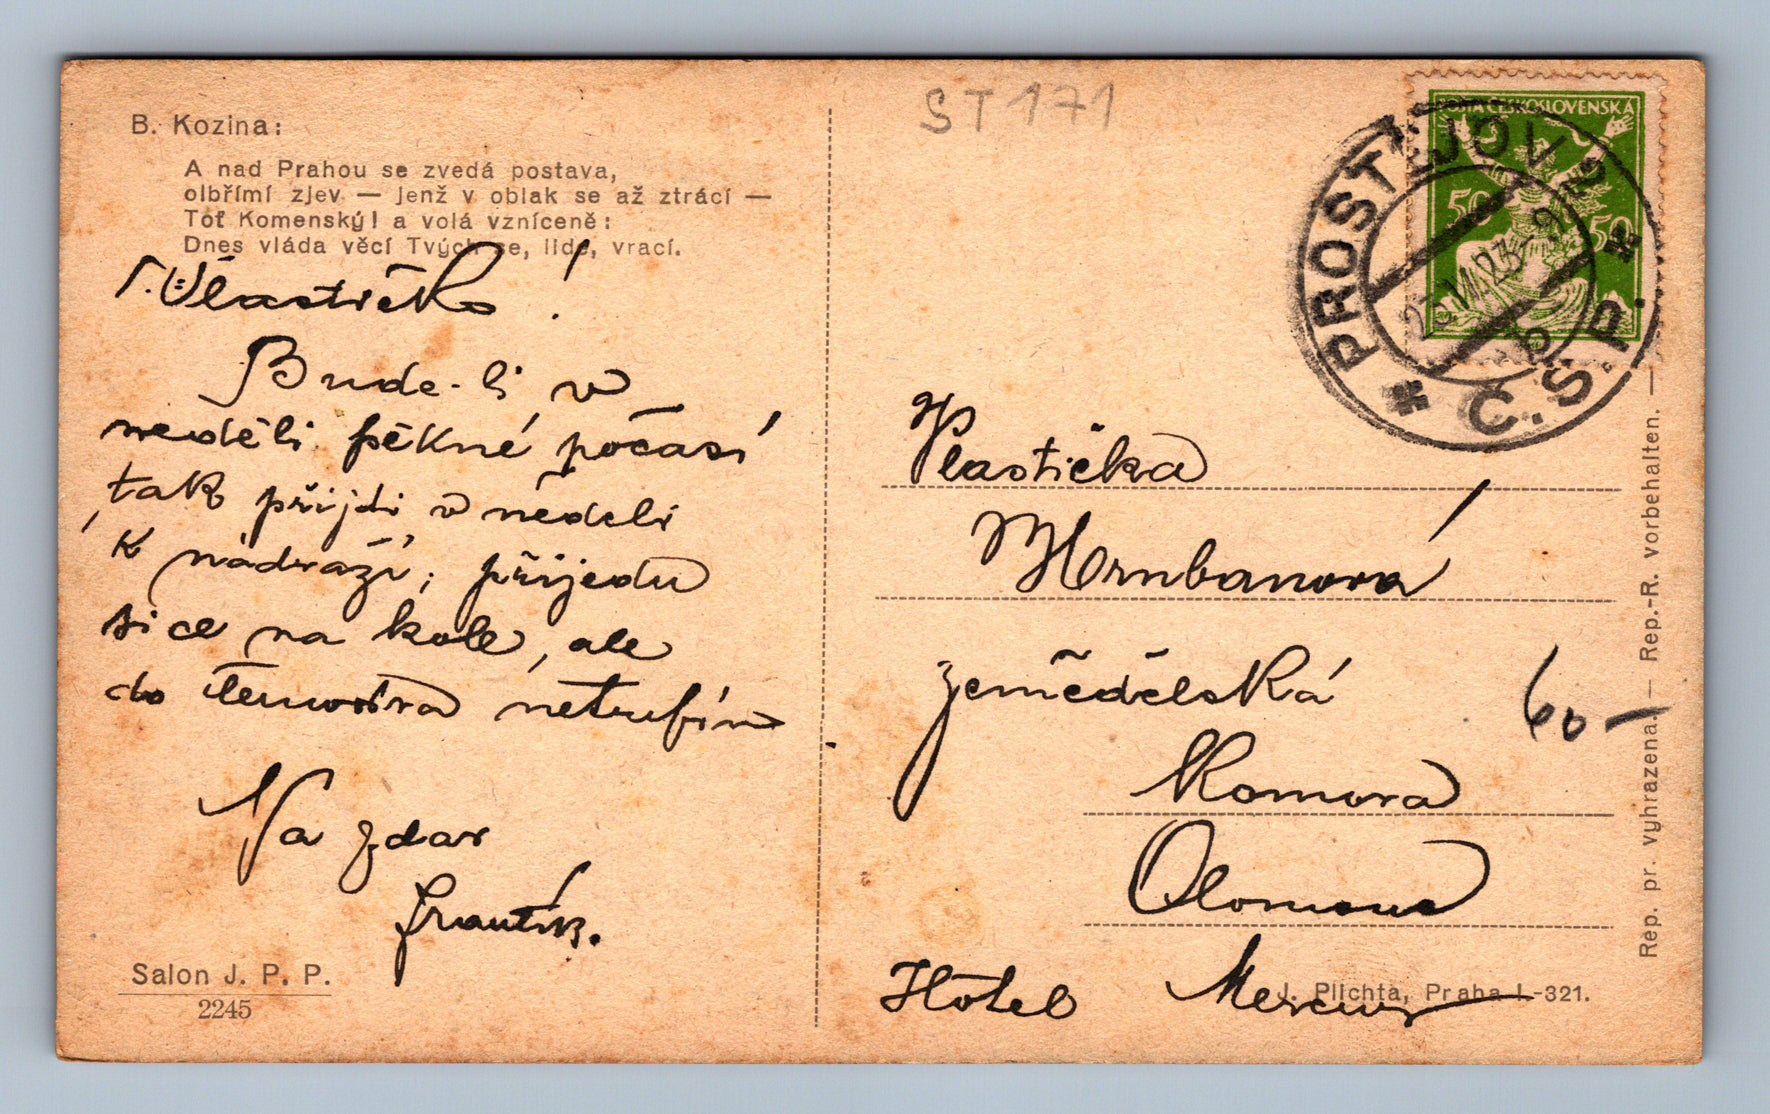 B. Kozina:
A nad Prahou se zvedá postava,
olbřímí zjev — jenž v oblak se až ztrácí —
Toť Komenský! a volá vzníceně:
Dnes vláda věcí Tvých se, lide, vrací.
Vlastičko!
Bude-li v
neděli pěkné počasí
tak přijdi v neděli
k nádraží, přijedu
sice na kole, ale
do
Na zdar
Frantík.
Salon J. P. P.
2245
ST 171
POŠTA ČESKOSLOVENSKÁ
50 50
PROSTĚJOV 2
Č.S.P.
Vlastička
zemědělská
Komora
Olomouc
Hotel Mercur
60—
J. Plichta, Praha I.-321.
Rep. pr. vyhrazena. — Rep.-R. vorbehalten. —